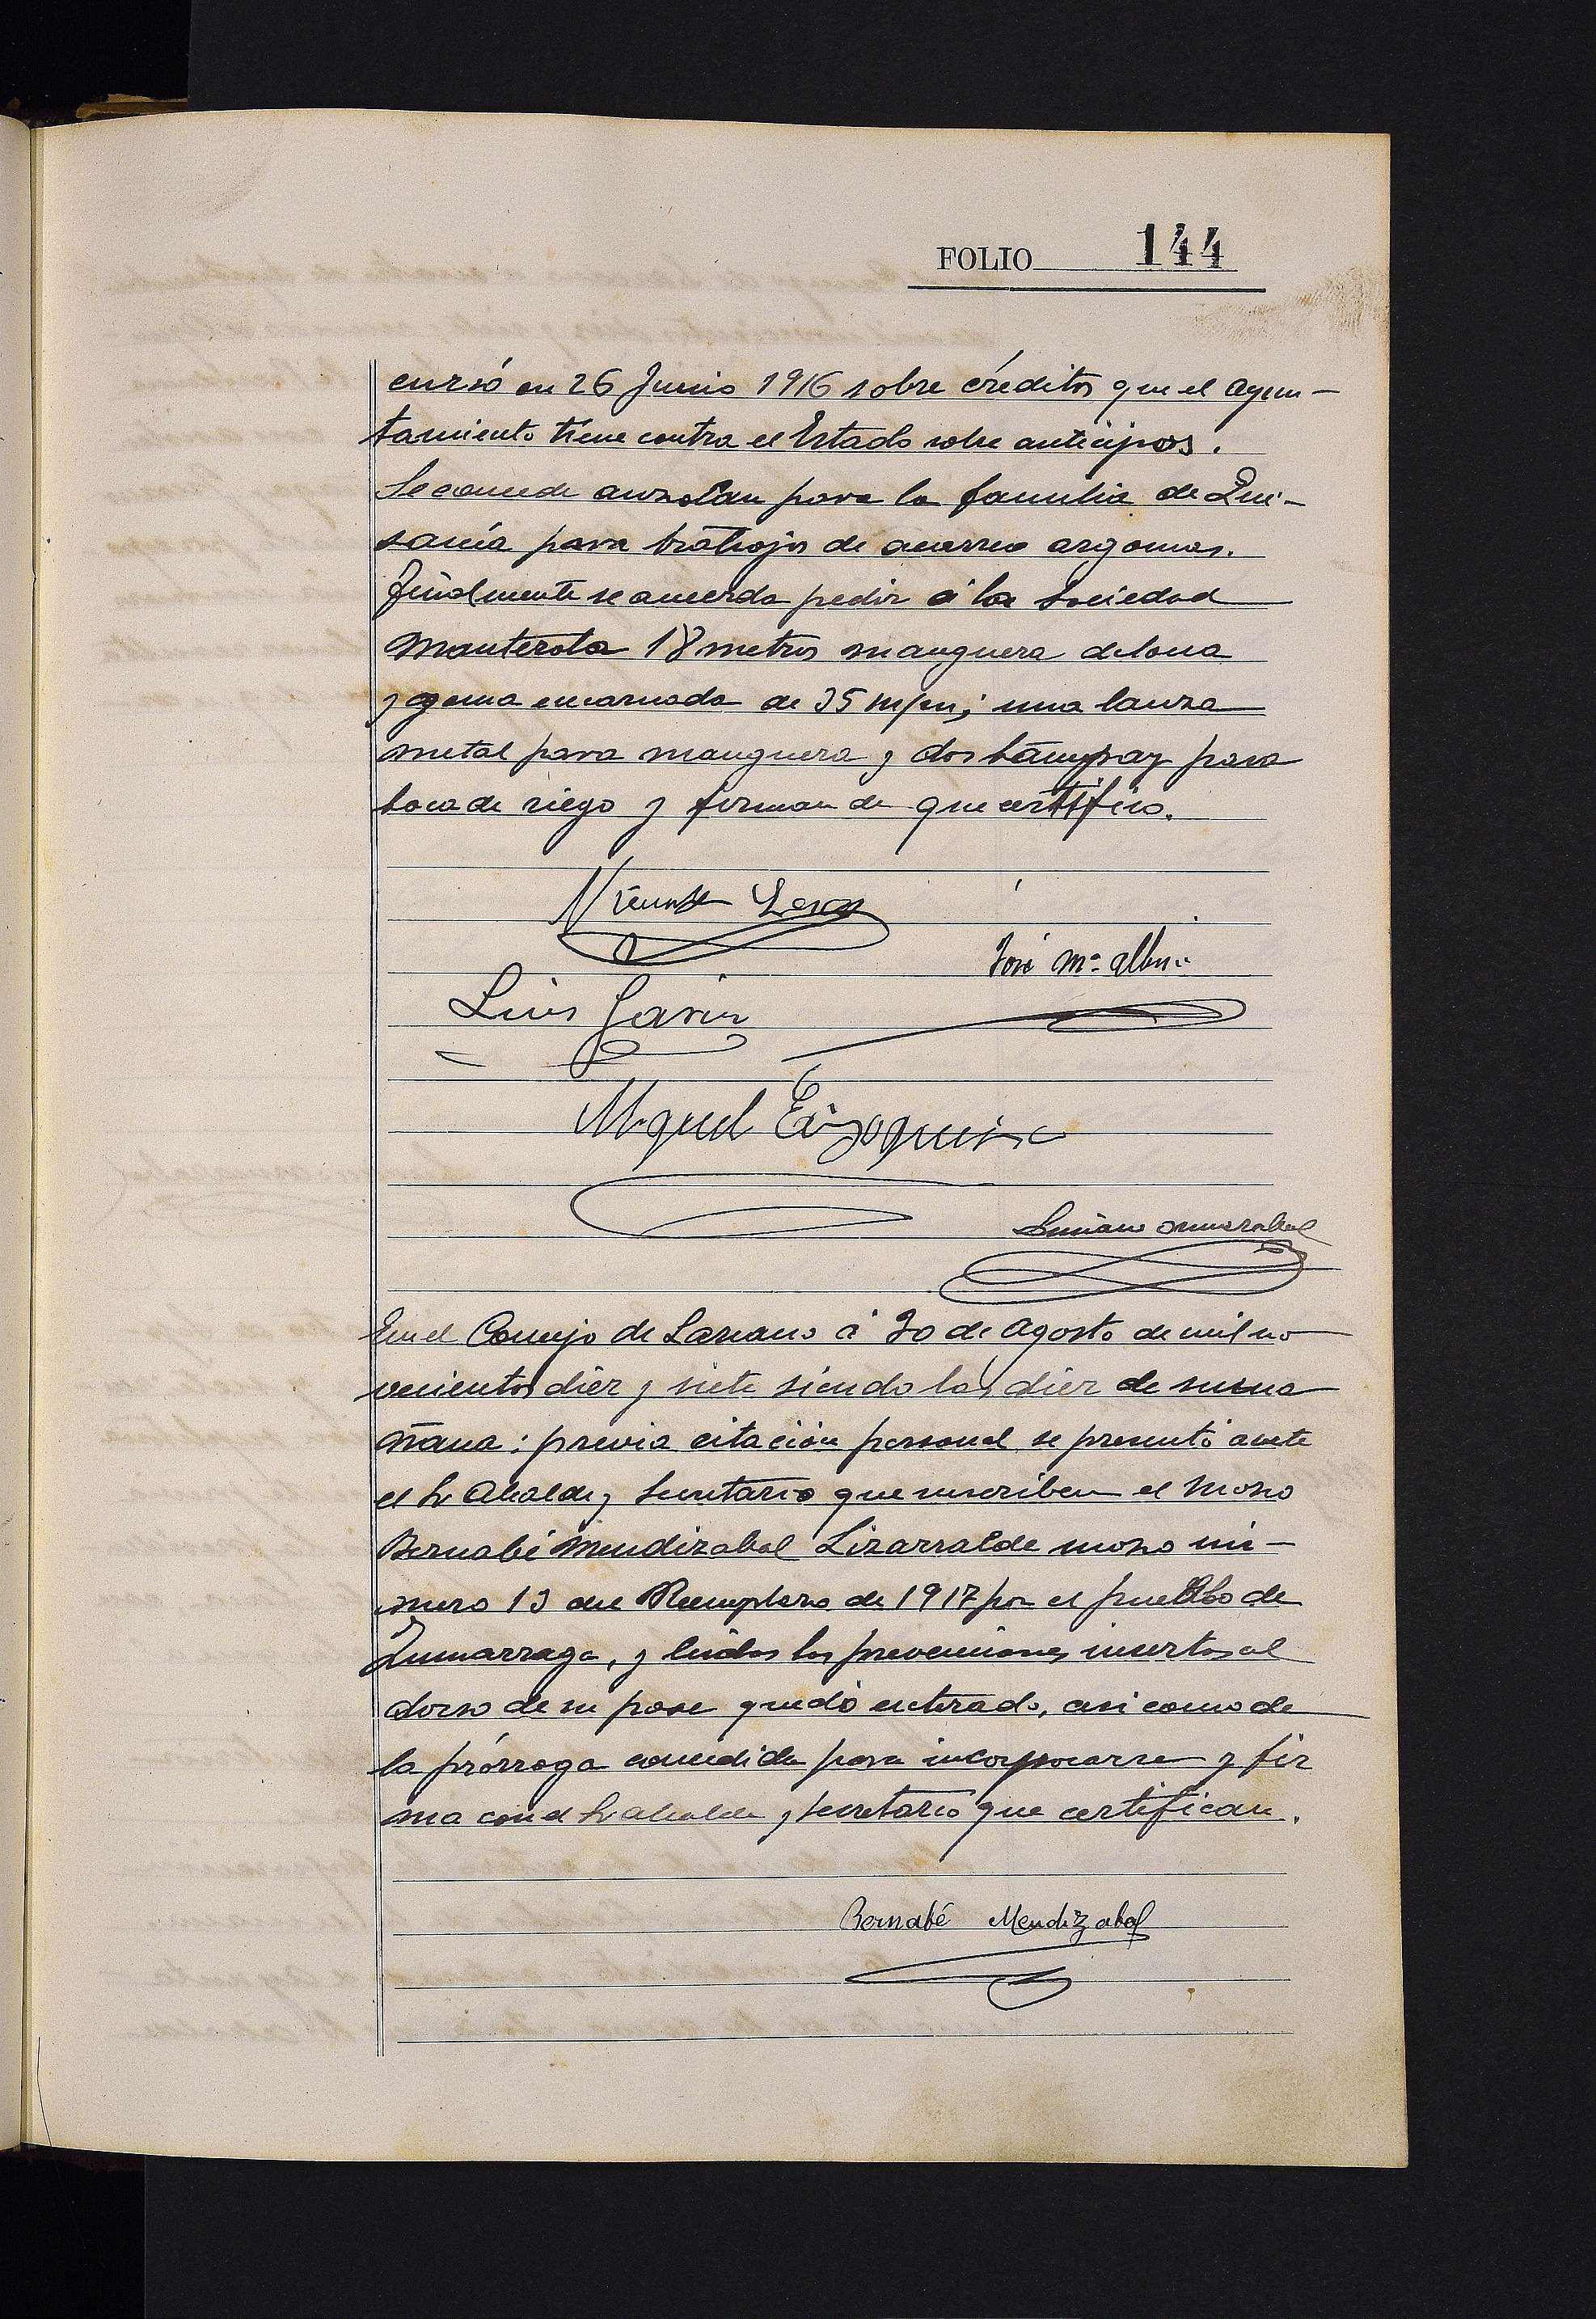 FOLIO 144
cursó en 26 Junio 1916 sobre créditos que el Ayun-
tamiento tiene contra el Estado sobre anticipos.
Se concede auzolan para la familia de
para trabajos de acarreo argomas.
Finalmente se acuerda pedir á la Sociedad
Manterola 18 metros manguera de lona
y goma encarnada de 35 m/m; una lanza
metal para manguera y dos para
boca de riego y firman de que certifico.
Vicente
José Mª
Luis
Miguel
Luciano Ormazabal
En el Concejo de Lazcano á 30 de Agosto de mil no
vecientos diez y siete siendo las diez de su ma
ñana: previa citación personal se presentó ante
el Sr Alcalde y Secretario que suscriben el mozo
Bernabé Mendizabal Lizarralde mozo nú-
mero 13 del Reemplazo de 1917 por el pueblo de
Zumarraga, y leidas las prevenciones insertas al
dorso de su pase quedó enterado, asi como de
la prórroga concedida para incorporarse y fir
ma con el Sr alcalde y secretario que certifican.
Bernabé Mendizabal